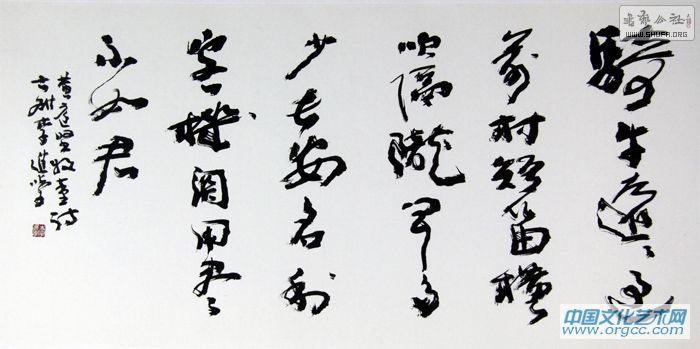 騎牛遠遠過
前村短笛橫
吹隔隴闻多
少长安名利
客機関用尽
不如君
黄庭坚牧童诗
书艺公社
WWW.SHUFA.ORG
中国文化艺术网
www.orgcc.com